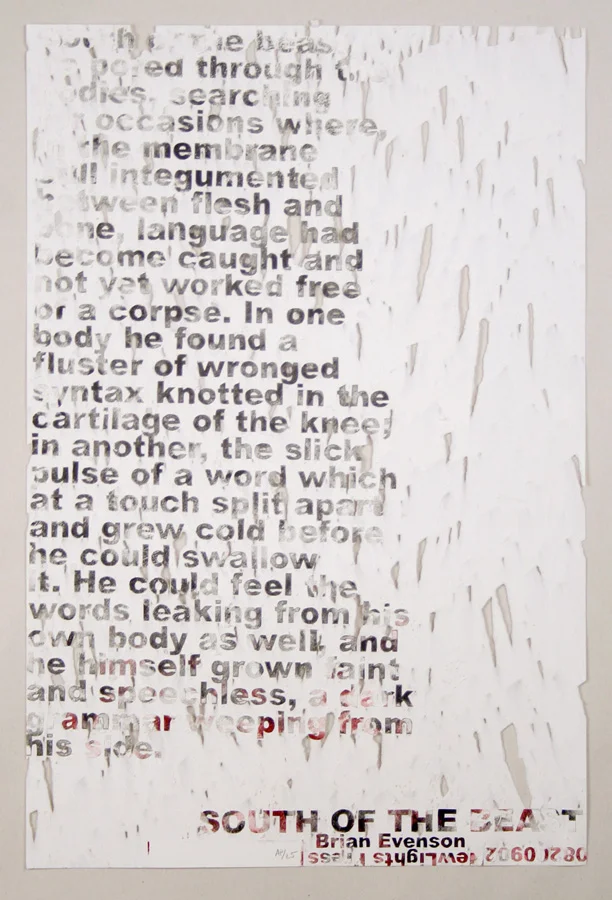 South of the beast
he pored through the
bodies, searching
for occasions where,
in the membrane
still integumented
between flesh and
bone, language had
become caught and
not yet worked free
or a corpse. In one
body he found a
fluster of wronged
syntax knotted in the
cartilage of the knee;
in another, the slick
pulse of a word which
at a touch split apart
and grew cold before
he could swallow
it. He could feel the
words leaking from his
own body as well, and
he himself grown faint
and speechless, a dark
grammar weeping from
his side.
SOUTH OF THE BEAST
Brian Evenson
NewLights Press